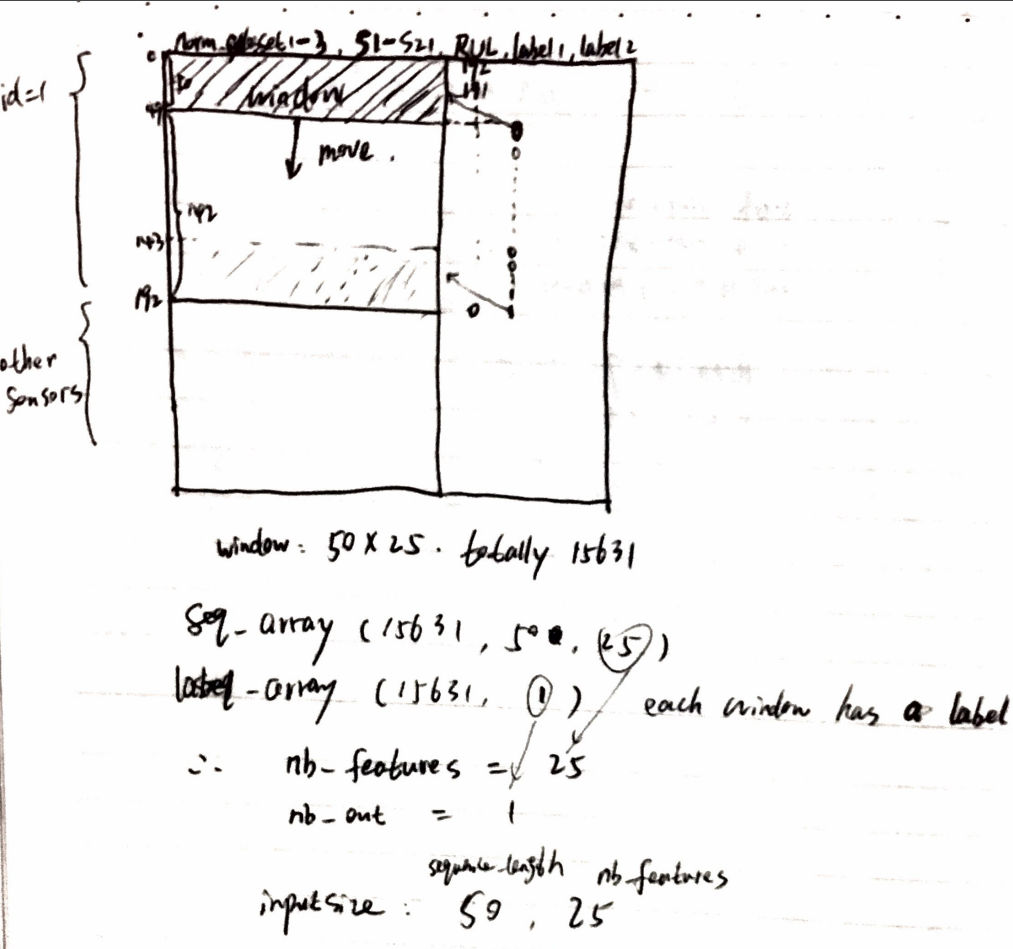 norm, set1-3, S1-S21, RUL, label1, label2
0
192
id=1
50
window
191
49
move.
142
143
192
0
other
sensors
window: 50 X 25. totally 15631
Seq-array (15631, 50, 25)
label-array (15631, 1) each window has a label
∴ nb-features = 25
nb-out = 1
sequence-length nb-features
inputsize: 50, 25